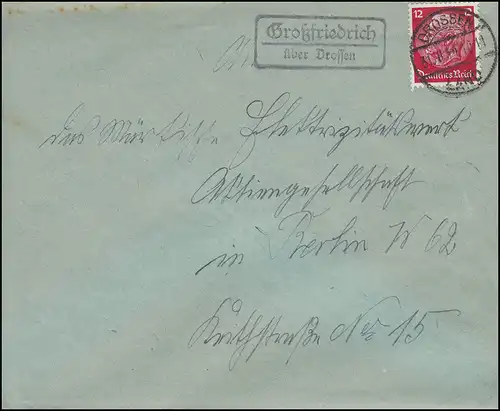 Großfriedrich
über Drossen
12
DROSSEN
Deutsches Reich
LAND
An
das Märkische Elektrizitätswerk
Aktiengesellschaft
in Berlin W 62
Keithstraße No 15